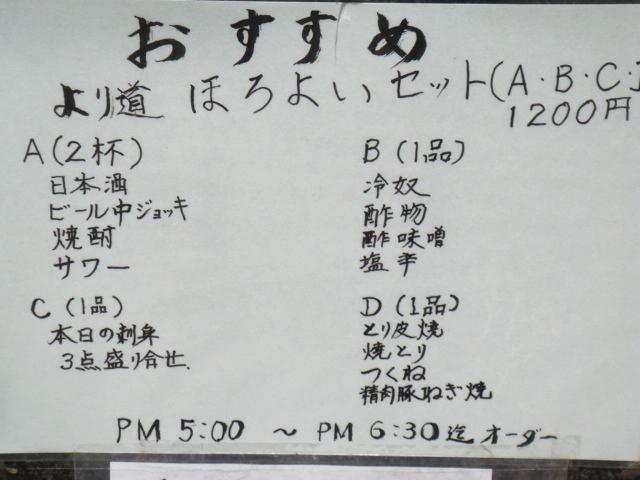 おすすめ
より道 ほろよいセット(A・B・C・
1200円
A(2杯)
日本酒
ビール中ジョッキ
焼酎
サワー
B(1品)
冷奴
酢物
酢味噌
塩辛
C(1品)
本日の刺身
3点盛り合せ.
D(1品)
とり皮焼
焼とり
つくね
精肉豚ねぎ焼
PM 5:00 〜 PM 6:30迄 オーダー